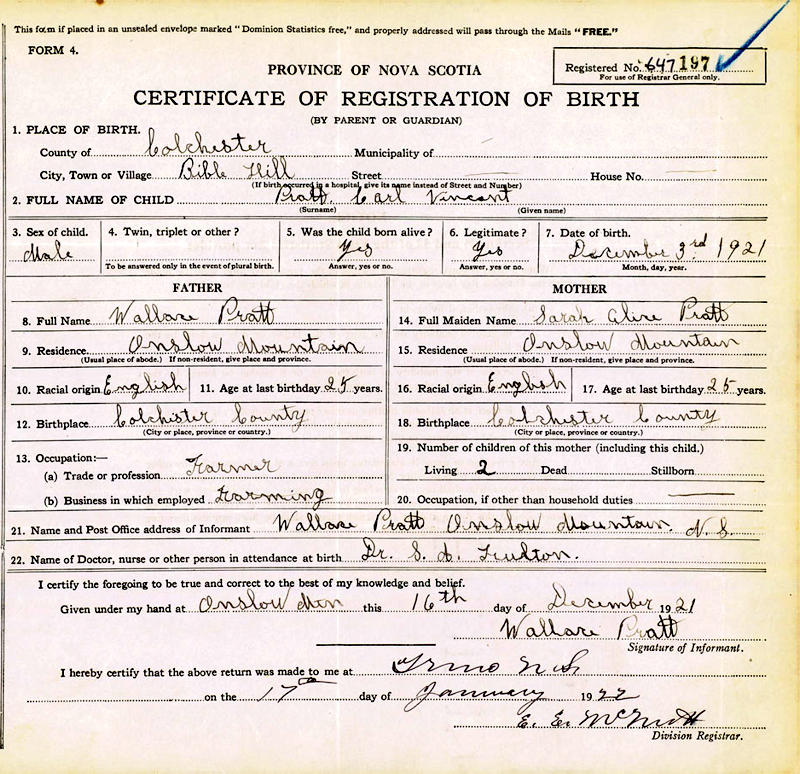 This form if placed in an unsealed envelope marked "Dominion Statistics free," and properly addressed will pass through the Mails "FREE."
FORM 4.
Registered No. 647197
For use of Registrar General only.
PROVINCE OF NOVA SCOTIA
CERTIFICATE OF REGISTRATION OF BIRTH
(BY PARENT OR GUARDIAN)
1. PLACE OF BIRTH.
County of Colchester Municipality of
City, Town or Village Bible Hill Street — House No. —
(If birth occurred in a hospital, give its name instead of Street and Number)
2. FULL NAME OF CHILD Pratt Carl Vincent
(Surname) (Given name)
3. Sex of child. 4. Twin, triplet or other? 5. Was the child born alive? 6. Legitimate? 7. Date of birth.
Male Yes Yes December 3rd 1921
To be answered only in the event of plural birth. Answer, yes or no. Answer, yes or no. Month, day, year.
FATHER MOTHER
8. Full Name Wallace Pratt 14. Full Maiden Name Sarah Alice Pratt
9. Residence Onslow Mountain 15. Residence Onslow Mountain
(Usual place of abode.) If non-resident, give place and province. (Usual place of abode.) If non-resident, give place and province.
10. Racial origin English 11. Age at last birthday 25 years. 16. Racial origin English 17. Age at last birthday 25 years.
12. Birthplace Colchister County 18. Birthplace Colchister County
(City or place, province or country.) (City or place, province or country.)
13. Occupation:— 19. Number of children of this mother (including this child.)
(a) Trade or profession Farmer Living 2 Dead Stillborn
(b) Business in which employed Farming 20. Occupation, if other than household duties —
21. Name and Post Office address of Informant Wallace Pratt Onslow Mountain. N. S.
22. Name of Doctor, nurse or other person in attendance at birth Dr. S. Fulton.
I certify the foregoing to be true and correct to the best of my knowledge and belief.
Given under my hand at Onslow Mtn this 16th day of December 1921
Wallace Pratt
Signature of Informant.
I hereby certify that the above return was made to me at N S
on the 17th day of January 1922
E. E. McNutt
Division Registrar.